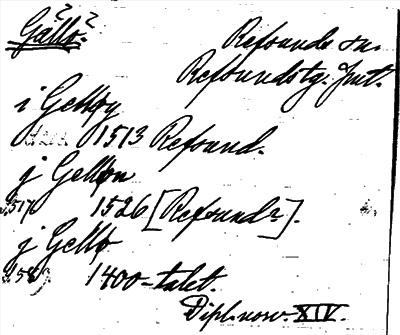 Gällö.
Refsunds sn.
Refsundstg. Jmt.
i Gelløy
1513 Refsund.
j Gelløn
1526 [Refsund?].
j Gellø
1400-talet.
Dipl. norv. XIV.